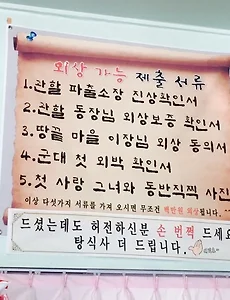 외상 가능 제출 서류
1.관할 파출소장 진상확인서
2.관할 동장님 외상보증 확인서
3.땅끝 마을 이장님 외상 동의서
4.군대 첫 외박 확인서
5.첫 사랑 그녀와 동반직찍 사진
이상 다섯가지 서류를 가져 오시면 무조건 백만원 외상됩니다.
드셨는데도 허전하신분 손 번쩍 드세요
탕식사 더 드립니다.